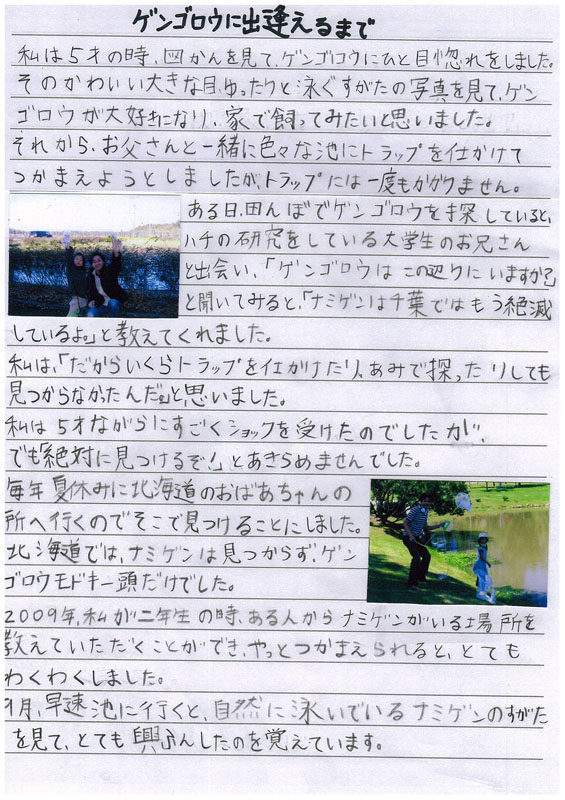 ゲンゴロウに出逢えるまで
私は5才の時、図かんを見て、ゲンゴロウにひと目惚れをしました。
そのかわいい大きな目、ゆったりと泳ぐすがたの写真を見て、ゲン
ゴロウが大好きになり、家で飼ってみたいと思いました。
それから、お父さんと一緒に色々な池にトラップを仕かけて
つかまえようとしましたが、トラップには一度もかかりません。
ある日、田んぼでゲンゴロウを探していると、
ハチの研究をしている大学生のお兄さん
と出会い、「ゲンゴロウはこの辺りにいますか?」
と聞いてみると、「ナミゲンは千葉ではもう絶滅
しているよ。」と教えてくれました。
私は、「だからいくらトラップを仕かけたり、あみで探ったりしても
見つからなかったんだ。」と思いました。
私は5才ながらにすごくショックを受けたのでしたが、
でも「絶対に見つけるぞ!」とあきらめませんでした。
毎年夏休みに北海道のおばあちゃんの
所へ行くのでそこで見つけることにしました。
北海道では、ナミゲンは見つからず、ゲン
ゴロウモドキ一頭だけでした。
2009年、私が二年生の時、ある人からナミゲンがいる場所を
教えていただくことができ、やっとつかまえられると、とても
わくわくしました。
9月、早速池に行くと、自然に泳いでいるナミゲンのすがた
を見て、とても興ふんしたのを覚えています。